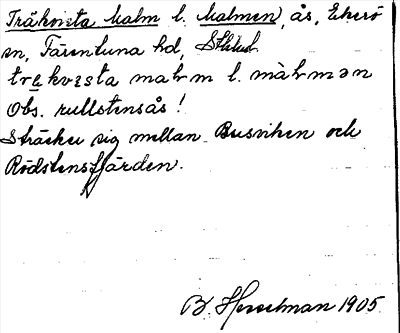 Träkvista malm l. Malmen, ås, Ekerö
sn, Färentuna hd, Sthlm
trakvista malm l. màlmən
Obs. rullstensås!
Sträcker sig mellan Busviken och
Rödstensfjärden.
B. Hesselman 1905.